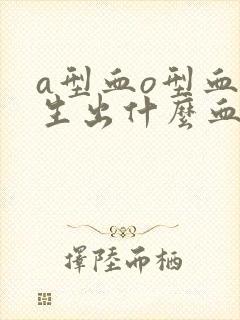 a型血o型血
生出什麼血
擇陸而栖